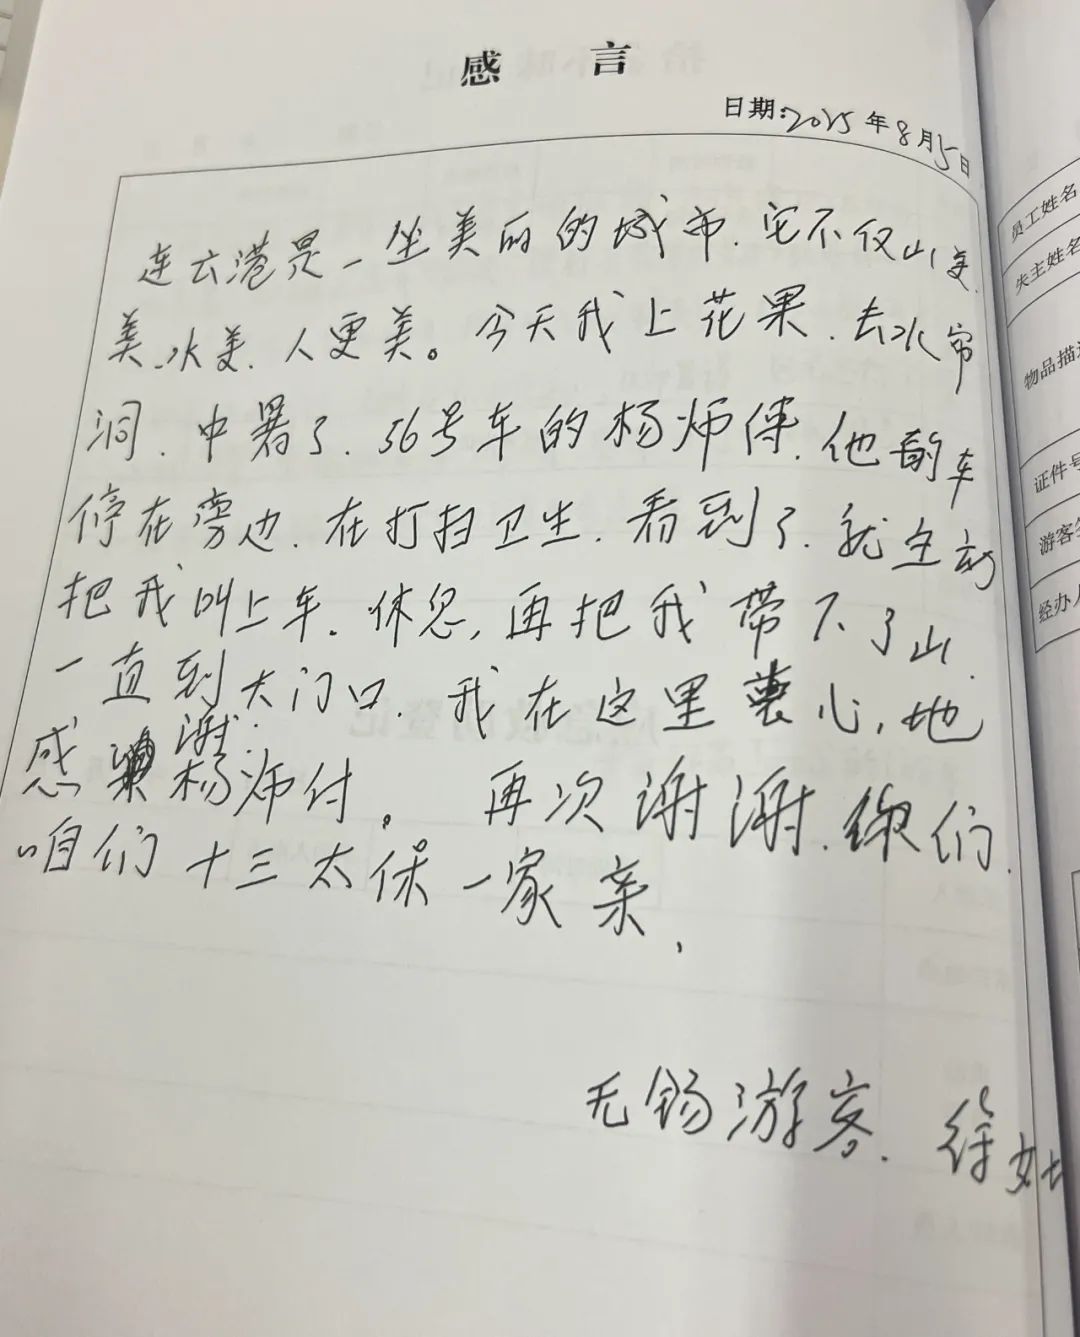 感 言
日期:2025年8月5日
连云港是一坐美丽的城市.它不仅山美
美.水美.人更美。今天我上花果.去水帘
洞.中暑了.56号车的杨师傅.他的车
停在旁边.在打扫卫生.看到了.就主动
把我叫上车.休息,再把我带下了山.
一直到大门口.我在这里衷心,地
感谢杨师付。再次谢谢.你们.
咱们十三太保一家亲,
无锡游客.徐女士
员工姓名
失主姓名
物品描述
证件号
游客
经办人